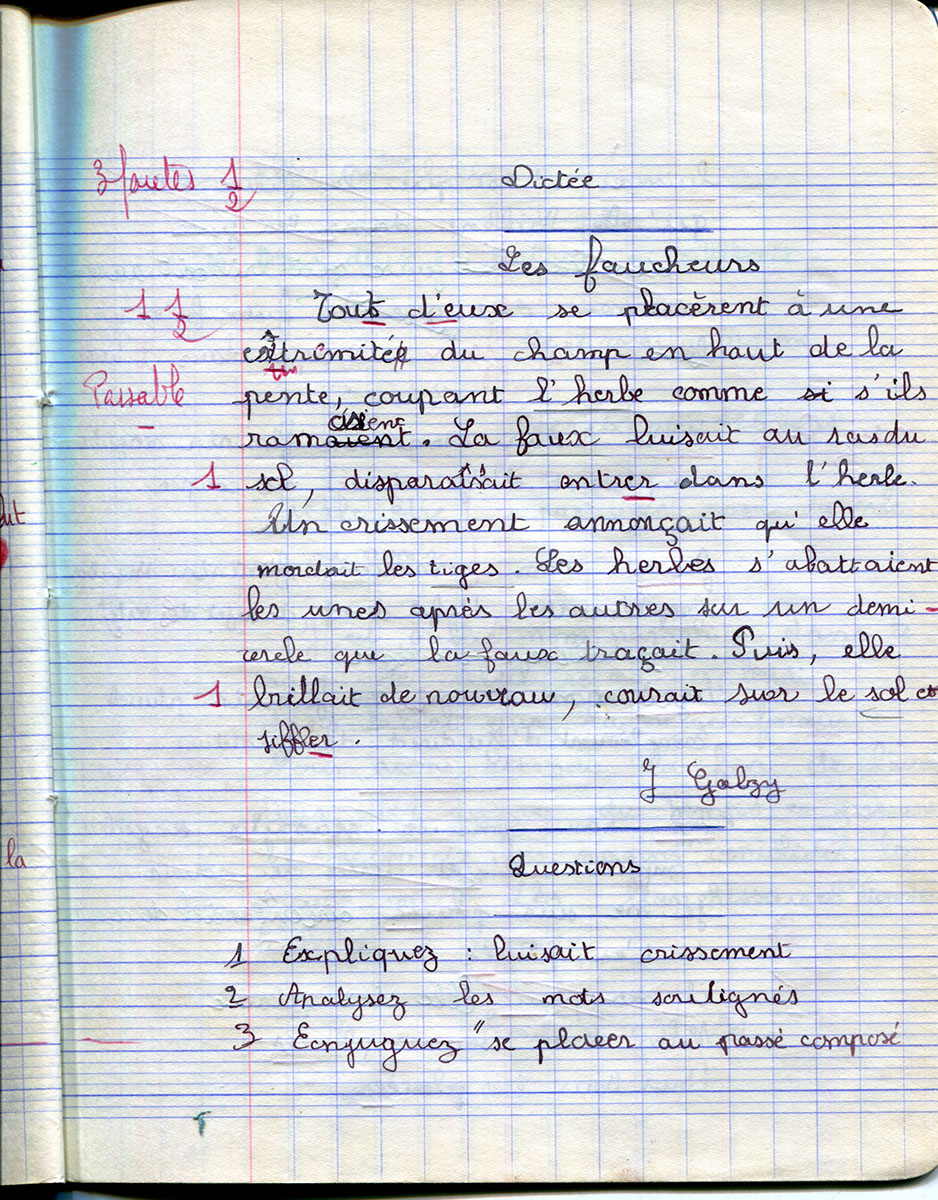 3 fautes 1/2
Dictée
Les faucheurs
1 1/2 Tout d'eux se placèrent à une
extrémitée du champ en haut de la
Passable pente, coupant l'herbe comme si s'ils
ramaient. La faux luisait au ras du
1 sol, disparaîssait entrer dans l'herbe.
Un crissement annonçait qu'elle
mordait les tiges. Les herbes s'abattaient
les unes après les autres sur un demi-
cercle que la faux traçait. Puis, elle
1 brillait de nouveau, courait sur le sol et
siffler.
J Galzy
Questions
1 Expliquez : luisait crissement
2 Analysez les mots soulignés
3 Conjuguez "se placer au passé composé
la